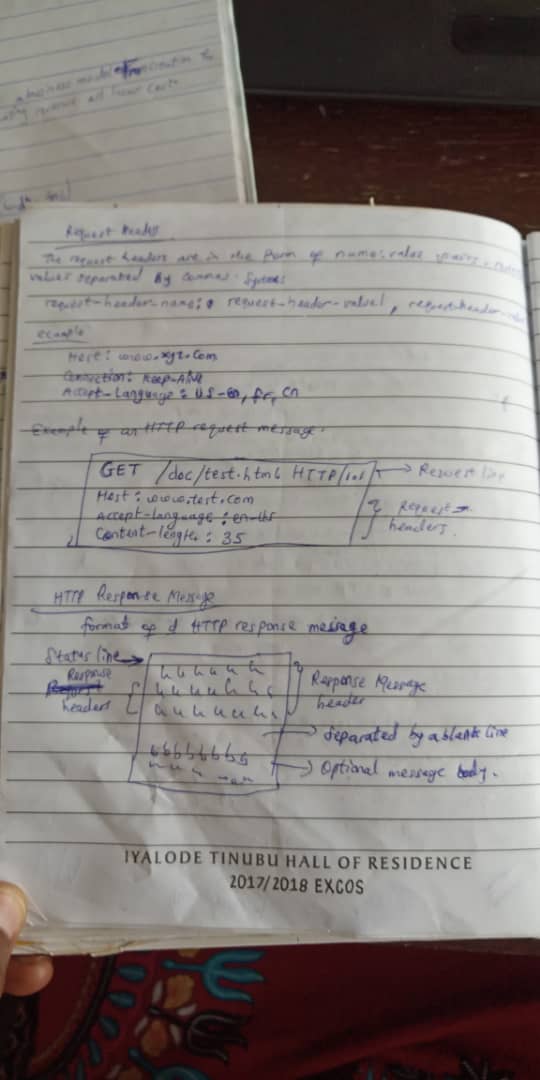 a business model
Request Header
The request headers are in the form of name:value pairs.
values separated by commas. Syntax
request-header-name: request-header-value1, request-header-
example
Host: www.xyz.com
Connection: Keep-Alive
Accept-Language: US-en, fr, cn
Example of an HTTP request message.
GET /doc/test.html HTTP/1.1 → Request line
Host: www.test.com
Accept-language: en-us
Request headers.
Content-length: 35
HTTP Response Message
format of d HTTP response message
Status line →
Response
headers
Response Message
header
→ Separated by a blank line
→ Optional message body.
IYALODE TINUBU HALL OF RESIDENCE
2017/2018 EXCOS